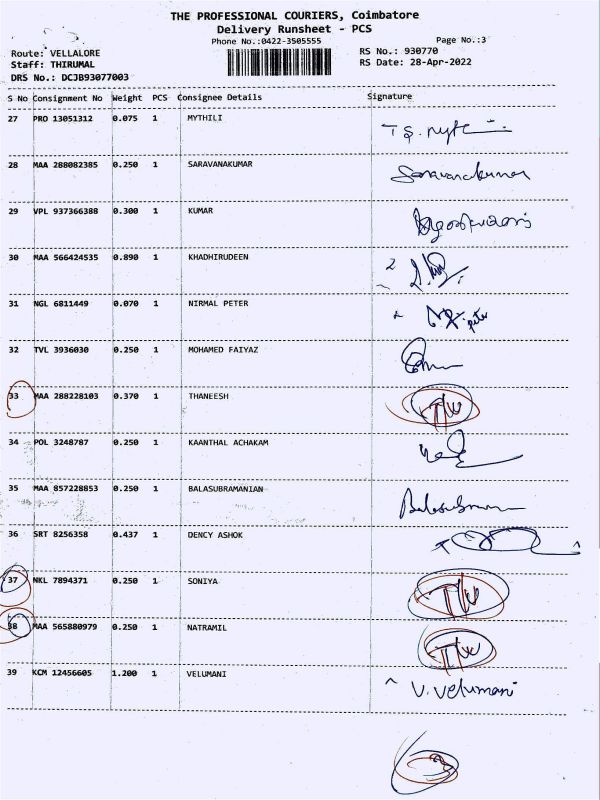 THE PROFESSIONAL COURIERS, Coimbatore
Delivery Runsheet - PCS
Phone No.:0422-3505555 Page No.:3
Route: VELLALORE RS No.: 930770
Staff: THIRUMAL RS Date: 28-Apr-2022
DRS No.: DCJB93077003
S No Consignment No Weight PCS Consignee Details Signature
27 PRO 13051312 0.075 1 MYTHILI
28 MAA 288082385 0.250 1 SARAVANAKUMAR Saravanakumar
29 VPL 937366388 0.300 1 KUMAR
30 MAA 566424535 0.890 1 KHADHIRUDEEN
31 NGL 6811449 0.070 1 NIRMAL PETER
32 TVL 3936030 0.250 1 MOHAMED FAIYAZ
33 MAA 288228103 0.370 1 THANEESH
34 POL 3248787 0.250 1 KAANTHAL ACHAKAM
35 MAA 857228853 0.250 1 BALASUBRAMANIAN
36 SRT 8256358 0.437 1 DENCY ASHOK
37 NKL 7894371 0.250 1 SONIYA
38 MAA 565880979 0.250 1 NATRAMIL
39 KCM 12456605 1.200 1 VELUMANI V. Velumani